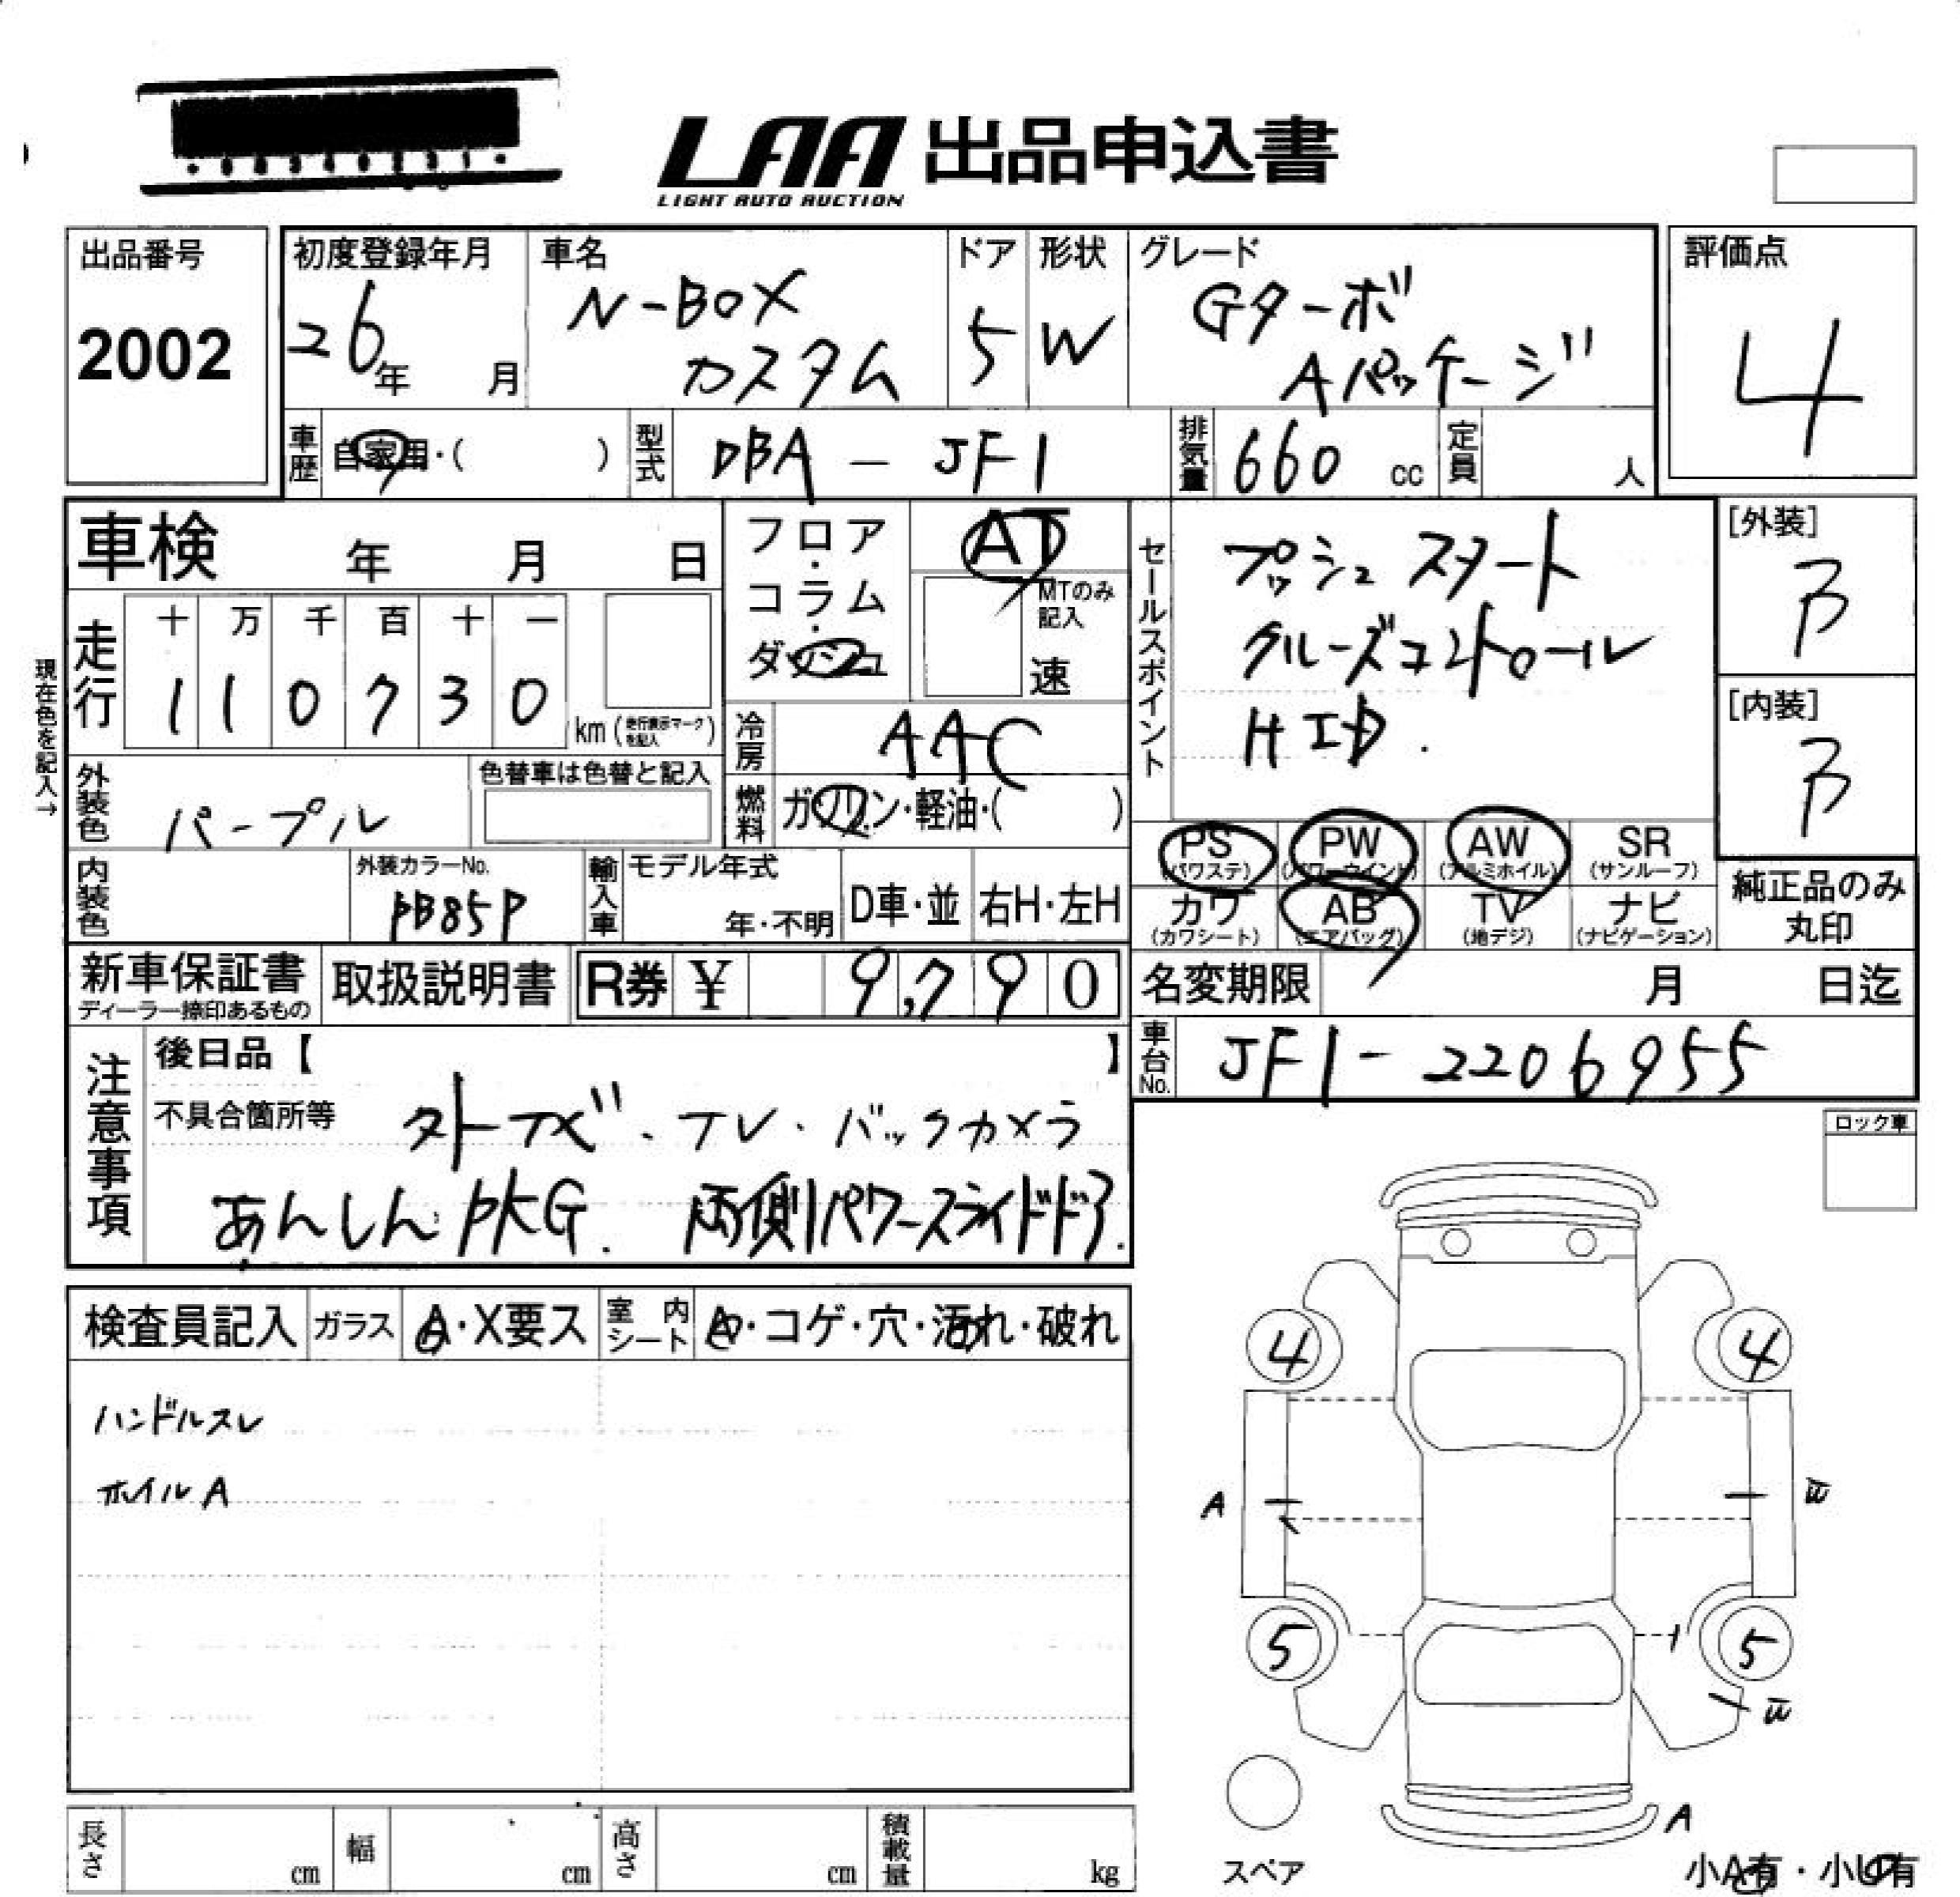 LAA 出品申込書
LIGHT AUTO AUCTION
出品番号
2002
初度登録年月
26年 月
車名
N-BOX
カスタム
ドア
5
形状
W
グレード
Gターボ
Aパッケージ
評価点
4
車歴
自家用・( )
型式
DBA-JF1
排気量
660 cc
定員
人
車検 年 月 日
フロア・
コラム・
ダッシュ
AT
MTのみ
記入
速
セールスポイント
プッシュスタート
クルーズコントロール
HID.
[外装]
B
[内装]
B
現在色を記入→
走行
十 万 千 百 十 一
1 1 0 7 3 0
km(走行表示マークを記入)
冷房
AAC
外装色
パープル
色替車は色替と記入
燃料
ガソリン・軽油・( )
PS
(パワステ)
PW
(パワーウインド)
AW
(アルミホイル)
SR
(サンルーフ)
内装色
外装カラーNo.
PB85P
輸入車
モデル年式
年・不明
D車・並
右H・左H
カワ
(カワシート)
AB
(エアバッグ)
TV
(地デジ)
ナビ
(ナビゲーション)
純正品のみ
丸印
新車保証書
ディーラー捺印あるもの
取扱説明書
R券 ¥ 9,790
名変期限 月 日迄
注意事項
後日品【 】
車台No.
JF1-2206955
不具合箇所等
TV・バックカメラ
あんしんPKG. 両側パワースライドドア.
ロック車
検査員記入
ガラス
A・X要ス
室内
シート
A・コゲ・穴・汚れ・破れ
ハンドルスレ
ホイルA
4 4
A
5 5
A
スペア
小A有・小U有
長さ cm
幅 cm
高さ cm
積載量 kg